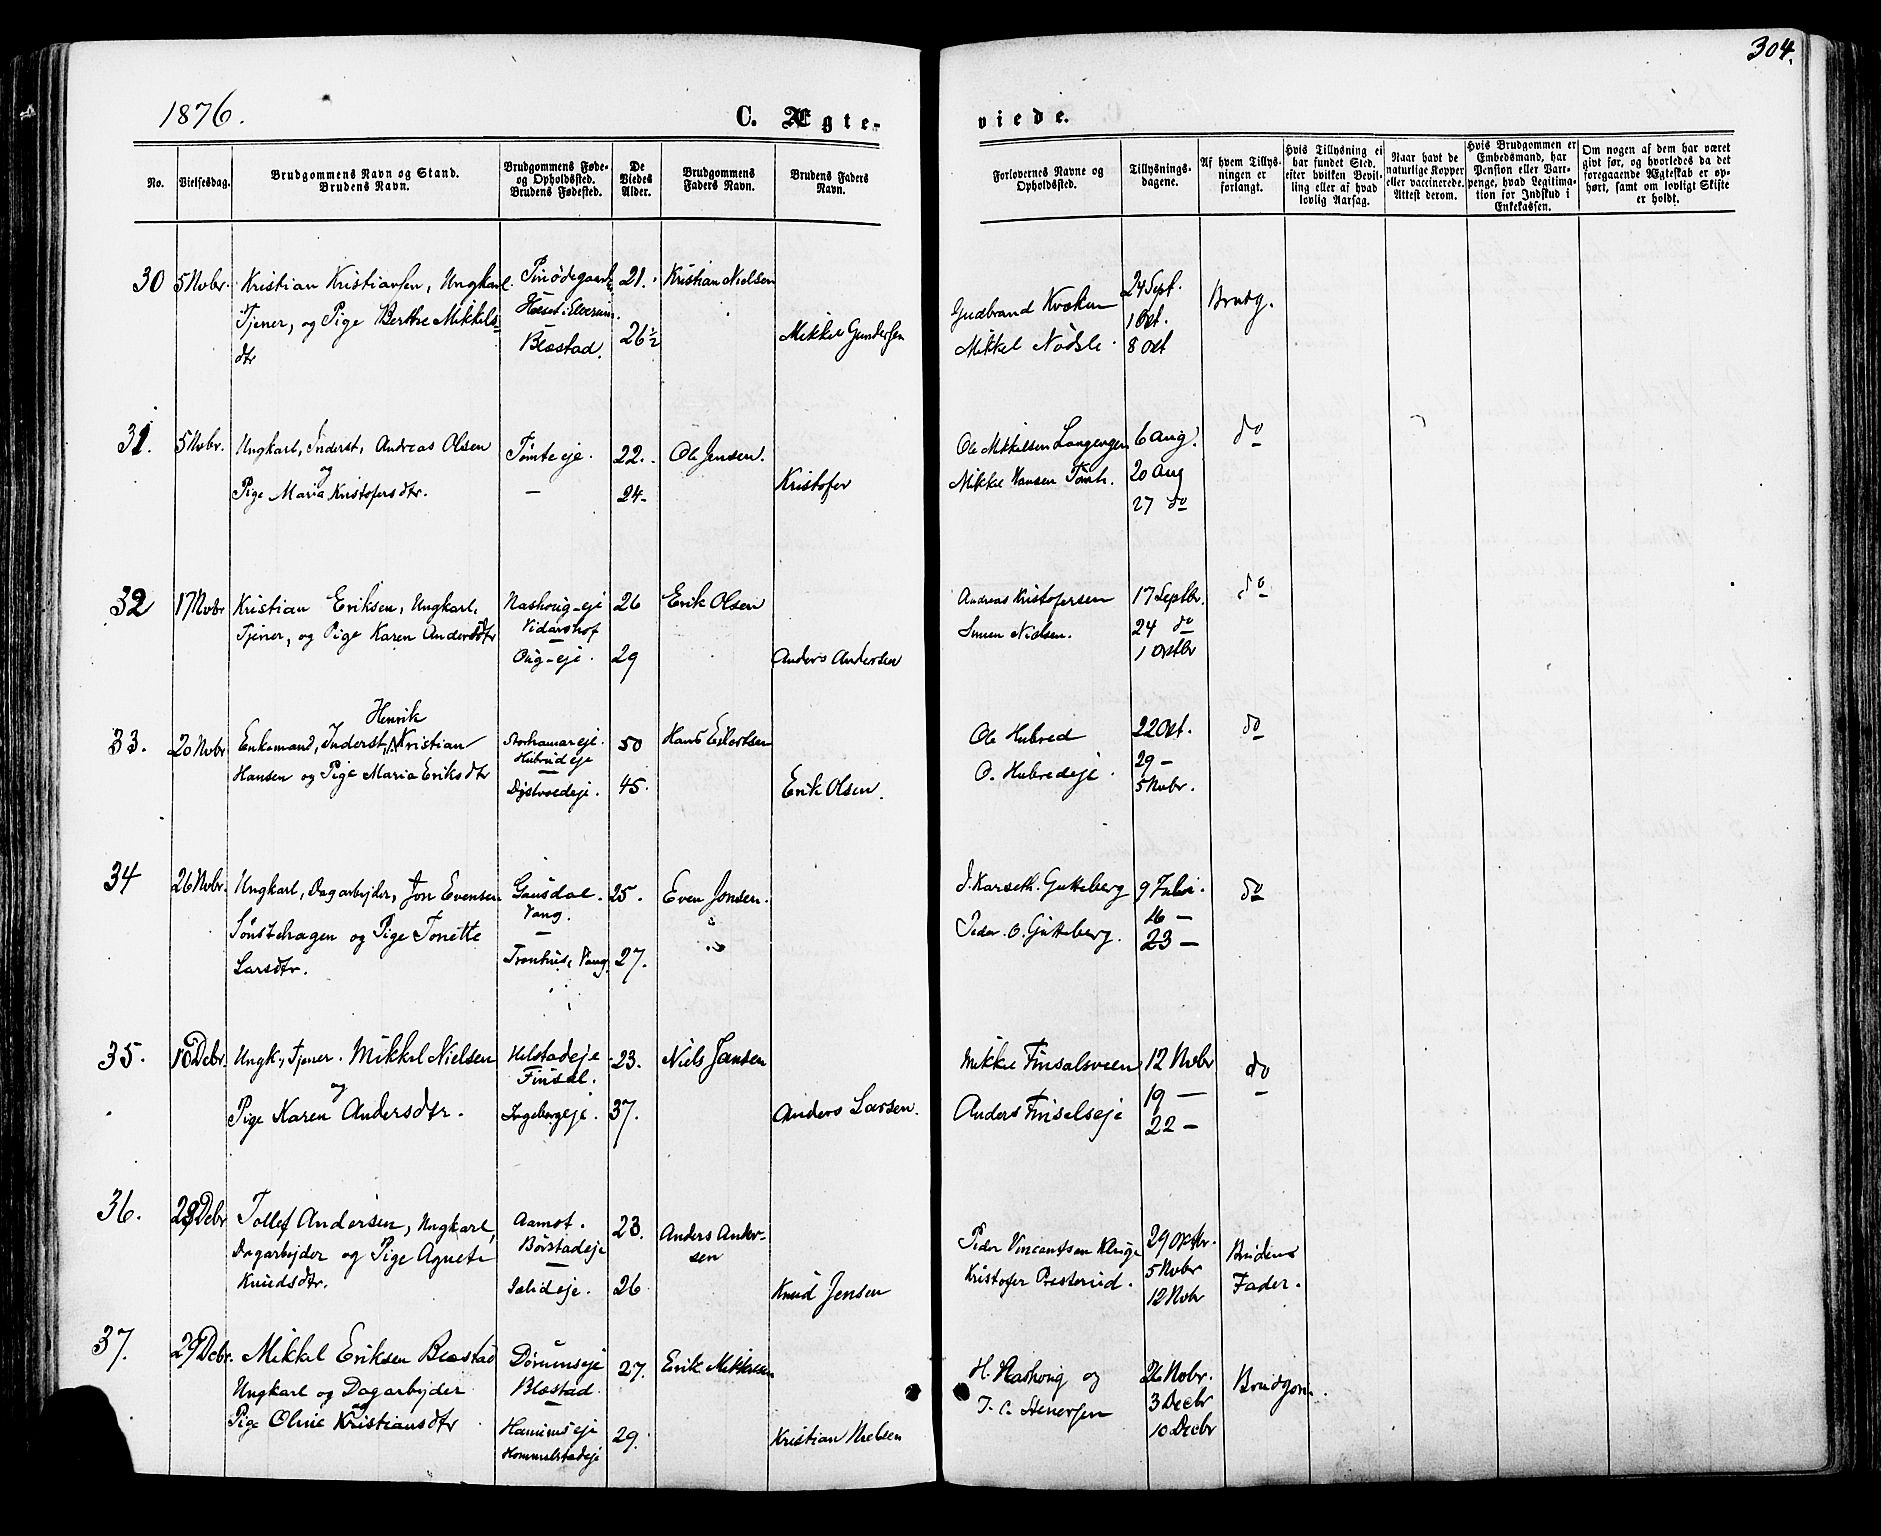 304.
1876.
C. Ægte-
viede.
No.
Vielsesdag.
Brudgommens Navn og Stand.
Brudens Navn.
Brudgommens Føde-
og Opholdssted.
Brudens Fødested.
De
Viedes
Alder.
Brudgommens
Faders Navn.
Brudens Faders
Navn.
Forlovernes Navne og
Opholdssted.
Tillysnings-
dagene.
Af hvem Tillys-
ningen er
forlangt.
Hvis Tillysning ei
har fundet Sted,
efter hvilken Bevil-
ling eller af hvad
lovlig Aarsag.
Naar havt de
naturlige Kopper
eller vaccinerede.
Attest derom.
Hvis Brudgommen er
Embedsmand, har
Pension eller Vart-
penge, hvad Legitima-
tion for Indskud i
Enkekassen.
Om nogen af dem har været
givt før, og hvorledes da det
foregaaende Ægteskab er op-
hørt, samt om lovligt Skifte
er holdt.
30 5 Novbr. Kristian Kristiansen, Ungkarl. 21. Kristian Nielsen
Tjener, og Pige Berthe Mikkels-
dtr
Blæstad. 26½ Mikkel Gundersen
Gudbrand Kvæken 24 Sept. Brudg.
1 Oct.
Mikkel Nødsle. 8 Oct
31. 5 Novbr. Ungkarl, Inderst, Andreas Olsen Tomte eje. 22. Ole Jensen.
og
Pige Maria Kristofersdtr. — 24. Kristofer
Ole Mikkelsen Langengen 6 Aug. do
Mikkel Hansen Tomt. 20 Aug
27 do
32 17 Novbr Kristian Eriksen, Ungkarl. Nashoug-eje 26 Erik Olsen
Tjener, og Pige Karen Andersdtr Vidarshof
Oug-eje. 29 Anders Andersen
Andreas Kristofersen 17 Septbr. do
Simen Nielsen. 24 do
1 Octbr
Henrik
33. 20 Novbr Enkemand, Inderst, Kristian Storhamareje. 50 Hans Eilertsen
Hubredeje
Hansen og Pige Maria Eriksdtr Dystvoldeje. 45. Erik Olsen.
Ole Hubred 22 Oct. do
O. Hubredeje. 29 —
5 Novbr.
34 26 Novbr. Ungkarl, Dagarbejder, Jon Evensen Gausdal. 25. Even Jonsen.
Vang.
Sønstehagen og Pige Tonette
Larsdtr. Tronhus, Vang. 27.
J. Karseth. Gutteberg 9 Juli. do
16 —
Peder. O. Gutteberg. 23 —
35. 10 Decbr Ungk., Tjener. Mikkel Nielsen Helstadeje 23. Niels Jansen
og Finsal.
Pige Karen Andersdtr. Ingebergeje. 37. Anders Larsen.
Mikkel Finsalsveen 12 Novbr do
19 —
Anders Finselseje 22 —
36. 28 Decbr Tollef Andersen, Ungkarl, Aamot. 23. Anders Ander-
sen
Dagarbejder og Pige Agnete Børstadeje
Knudsdtr. 26 Knud Jensen
Peder Vincentsen Kluge 29 Octbr. Brudens
Kristofer Presterud. 5 Novbr Fader.
12 Novbr
37. 29 Decbr. Mikkel Eriksen Blæstad 27. Erik Mikkelsen
Ungkarl og Dagarbejder Blæstad
og
Pige Oline Kristiansdtr 29. Kristian Nielsen
Hommelstadeje
H. Nashoug og 26 Novbr. Brudgom.
J. C. Stenersen 3 Decbr
10 Decbr